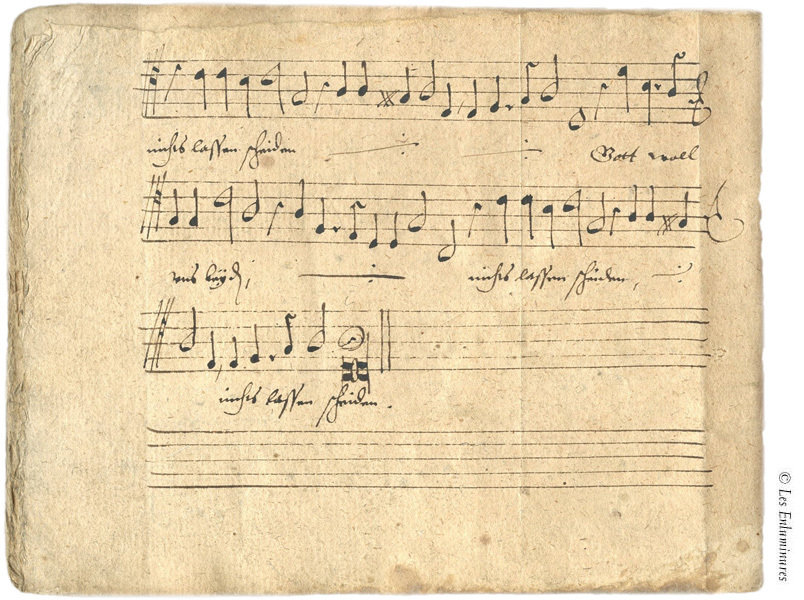 nichts lassen scheiden Gott woll
uns beyd, nichts lassen scheiden,
nichts lassen scheiden.
© Les Enluminures